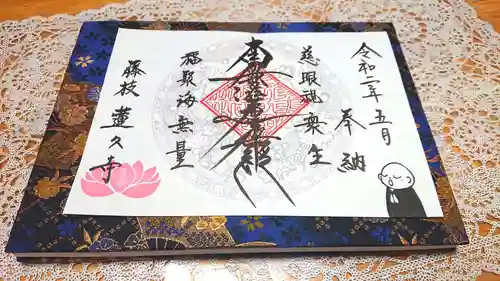 令和二年五月
奉納
慈眼視衆生
南無妙法蓮華経
福聚海無量
藤枝 蓮久寺